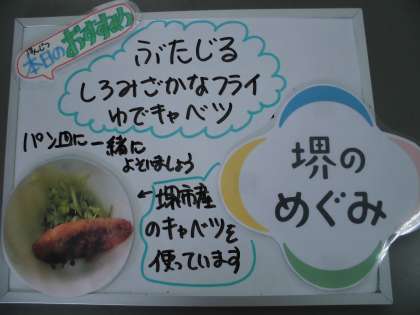 本日の
おすすめ
ぶたじる
しろみざかなフライ
ゆでキャベツ
パン皿に一緒に
よそいましょう
←堺市産
のキャベツを
使っています
堺の
めぐみ